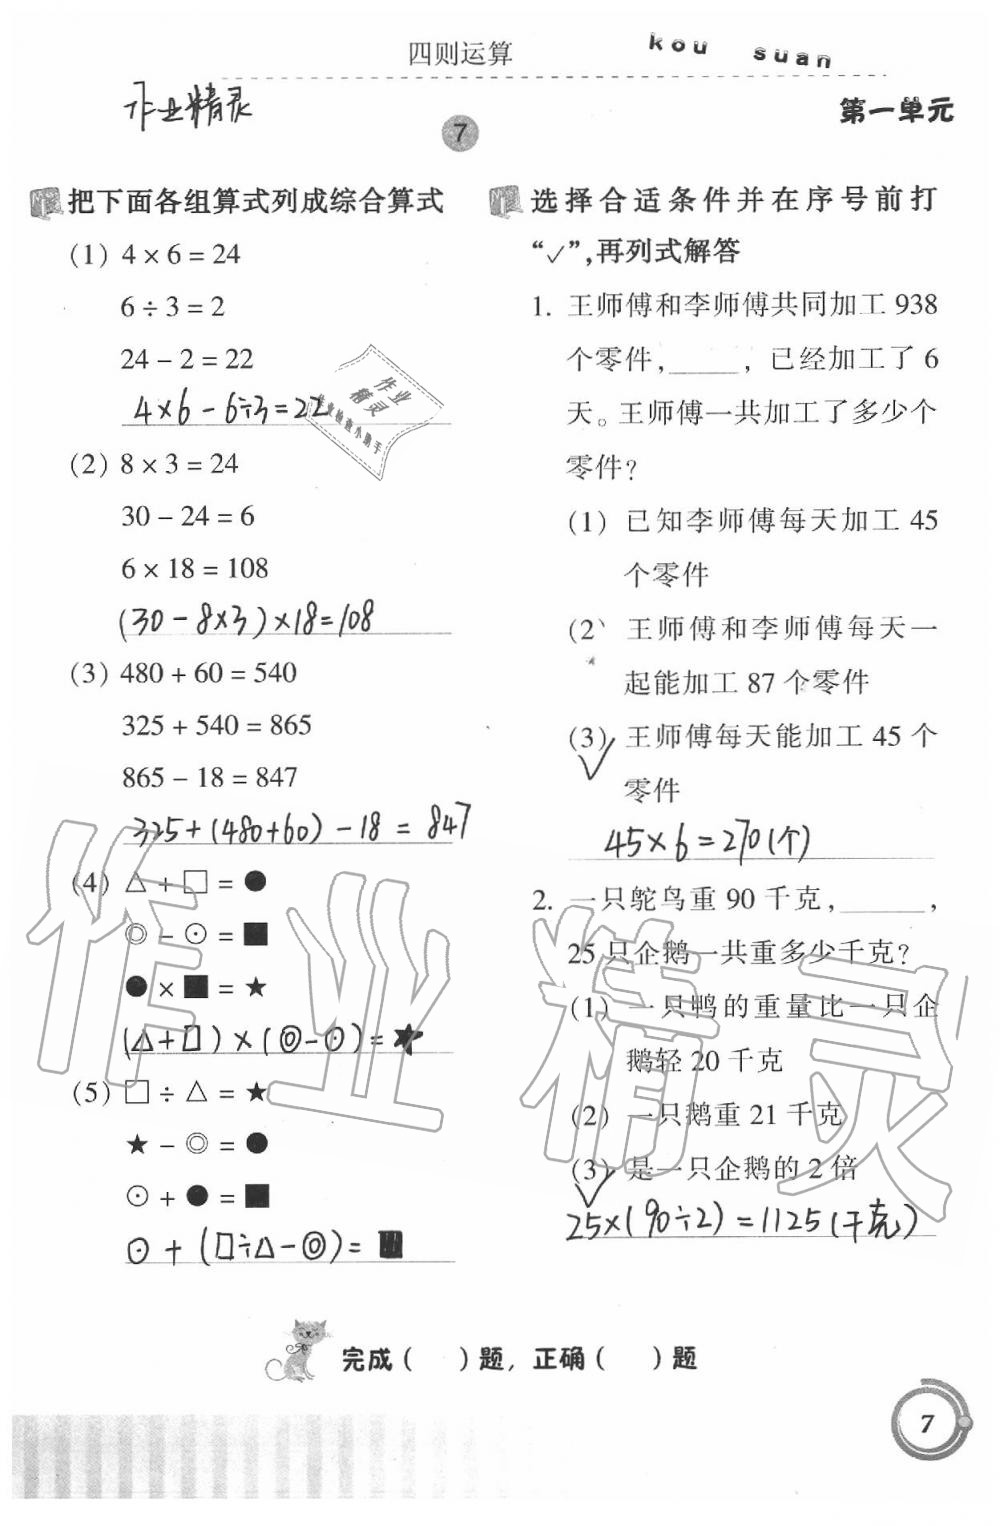 四则运算
kou suan
作业精灵
第一单元
7
把下面各组算式列成综合算式
(1) 4 × 6 = 24
6 ÷ 3 = 2
24 − 2 = 22
4×6－6÷3=22
作业
精灵
作业检查小助手
(2) 8 × 3 = 24
30 − 24 = 6
6 × 18 = 108
(30－8×3)×18=108
(3) 480 + 60 = 540
325 + 540 = 865
865 − 18 = 847
325+(480+60)－18 = 847
(4) △ + □ = ●
◎ − ⊙ = ■
● × ■ = ★
(△+□)×(◎−⊙)=★
(5) □ ÷ △ = ★
★ − ◎ = ●
⊙ + ● = ■
⊙ + (□÷△−◎)= ■
选择合适条件并在序号前打
“✓”,再列式解答
1. 王师傅和李师傅共同加工 938
个零件,____, 已经加工了 6
天。王师傅一共加工了多少个
零件?
(1) 已知李师傅每天加工 45
个零件
(2) 王师傅和李师傅每天一
起能加工 87 个零件
(3) 王师傅每天能加工 45 个
✓
零件
45×6=270(个)
2. 一只鸵鸟重 90 千克,____,
25 只企鹅一共重多少千克?
(1) 一只鸭的重量比一只企
鹅轻 20 千克
(2) 一只鹅重 21 千克
(3) 是一只企鹅的 2 倍
✓
25×(90÷2)=1125(千克)
作业精灵
完成( )题, 正确( )题
7